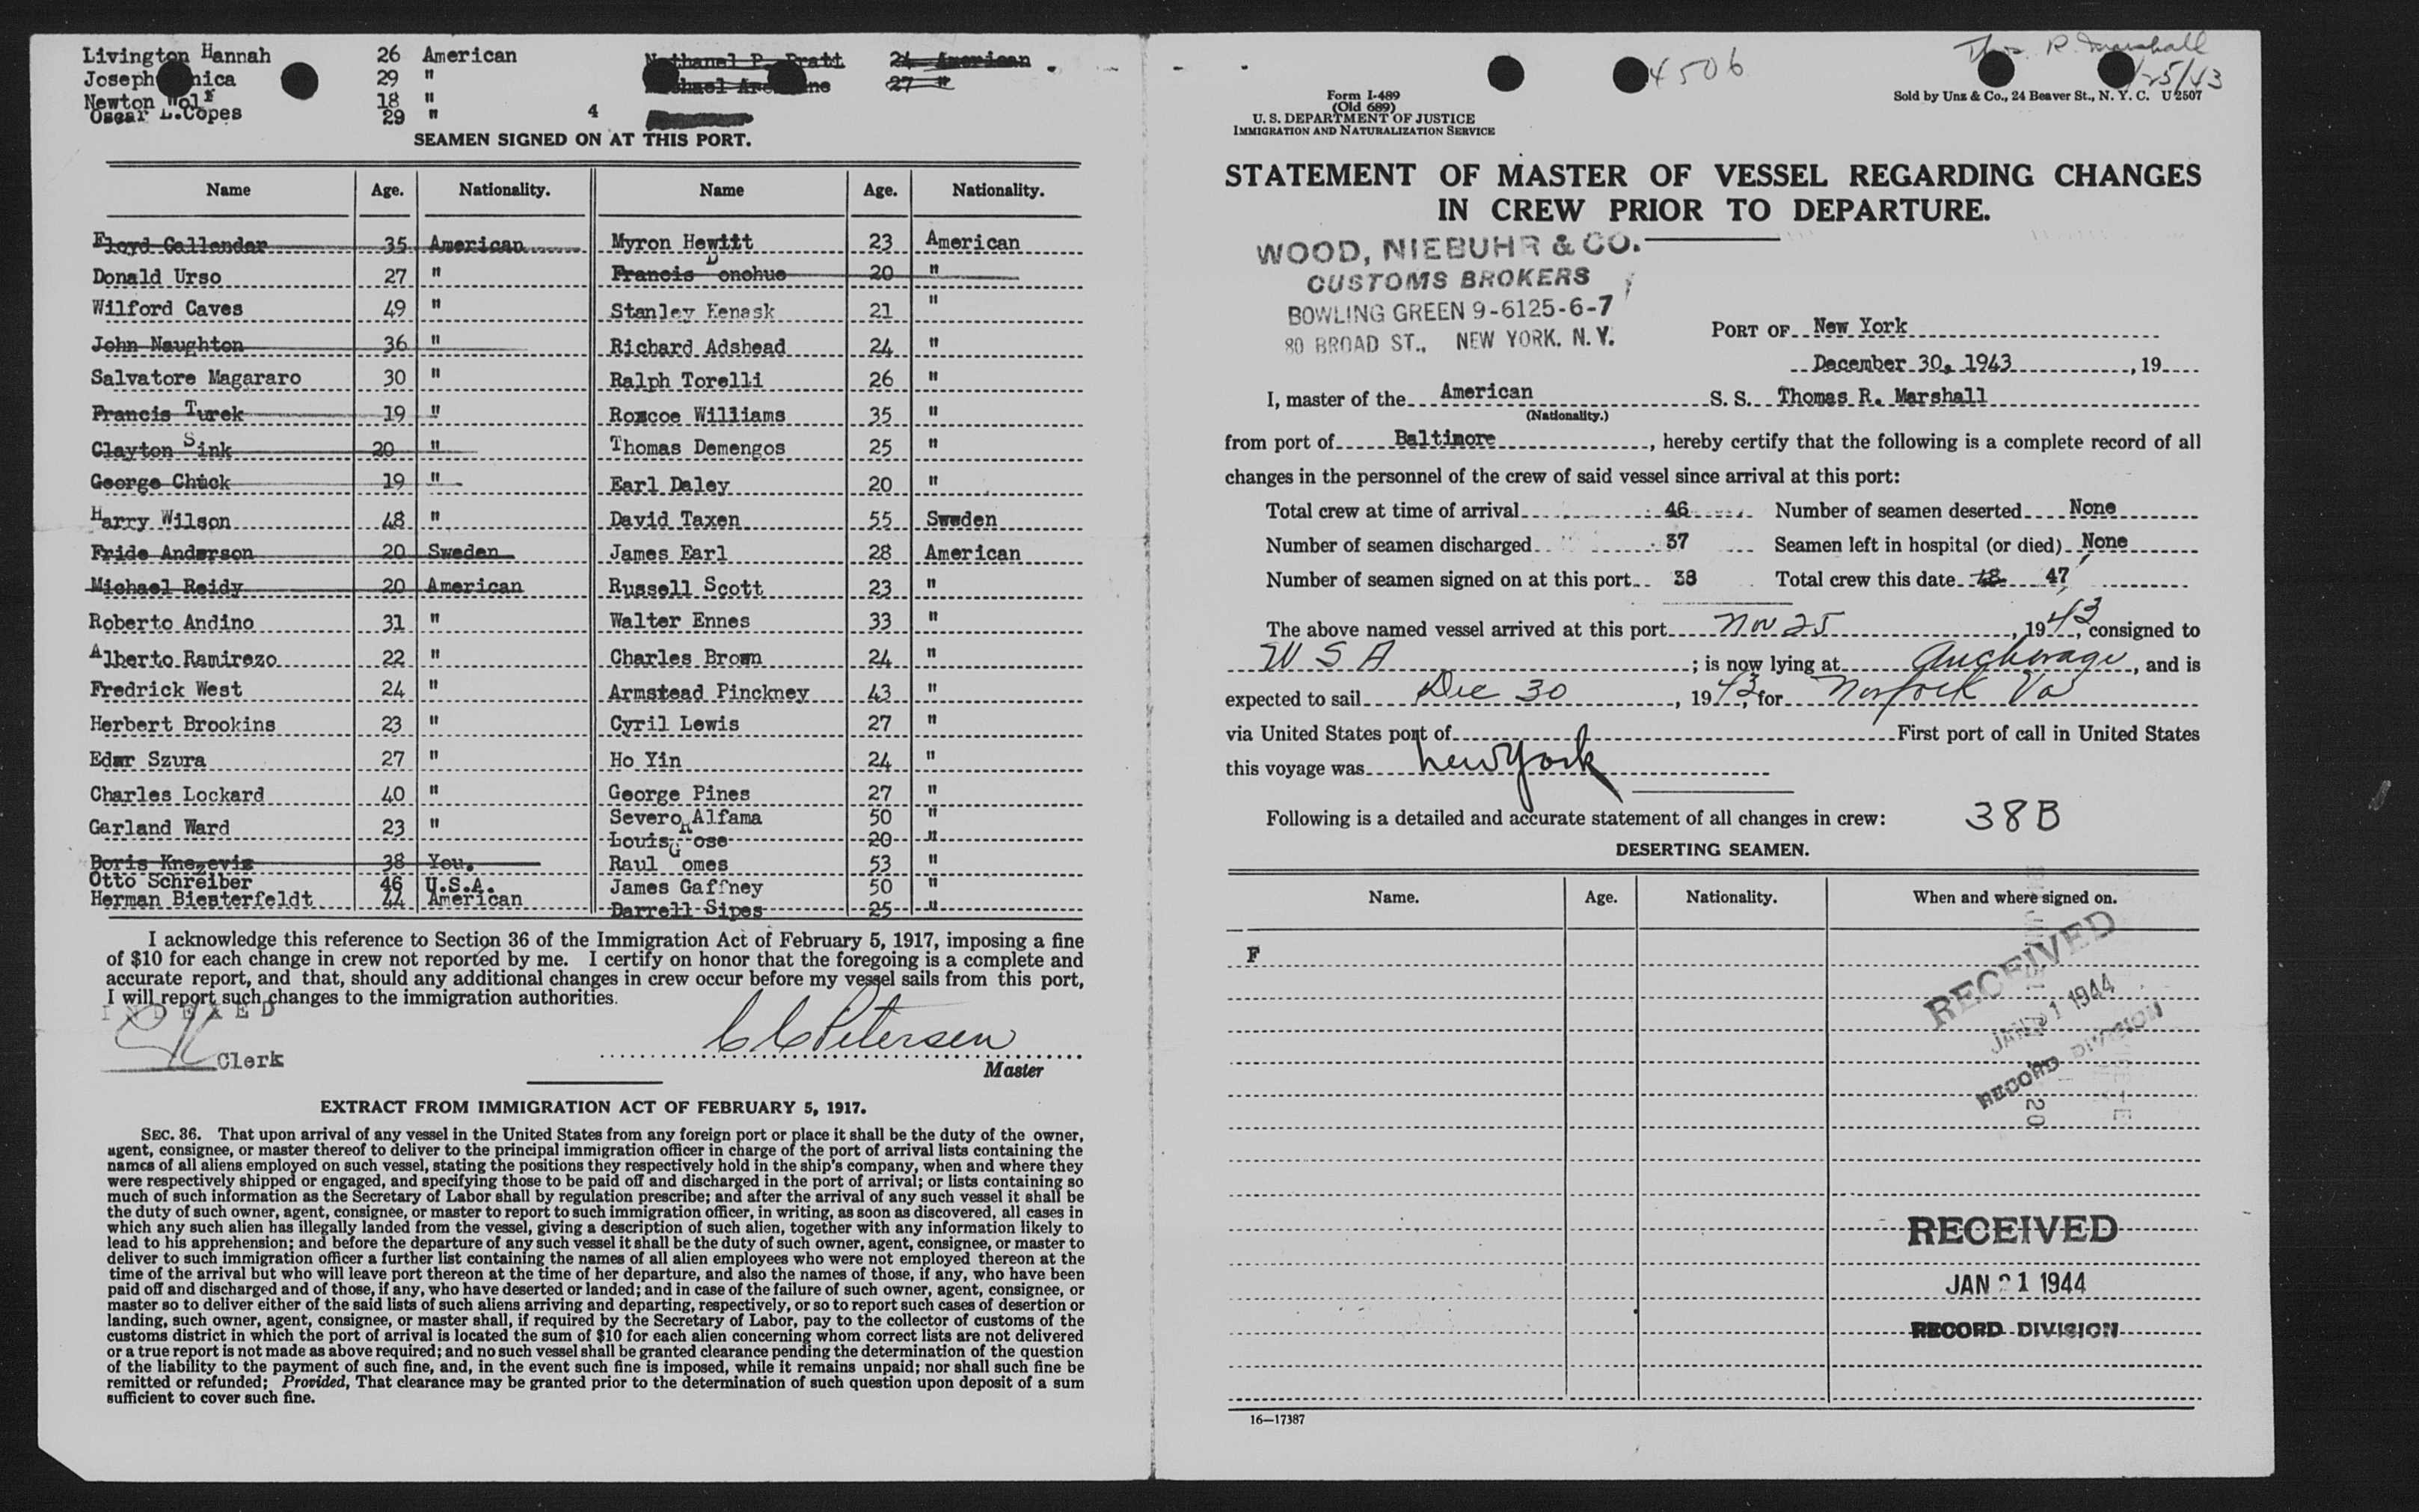 Livington Hannah 26 American Nathanel P. Pratt 24 American
Joseph 29 "
27 "
Newton 18 "
Oscar L. Copes 29 " 4
SEAMEN SIGNED ON AT THIS PORT.
Name Age. Nationality. Name Age. Nationality.
Floyd Callender 35 American Myron Hewitt 23 American
Donald Urso 27 " Francis Donohue 20 "
Wilford Caves 49 " Stanley Kenask 21 "
John Naughton 36 " Richard Adshead 24 "
Salvatore Magararo 30 " Ralph Torelli 26 "
Francis Turek 19 " Roscoe Williams 35 "
Clayton Sink 20 " Thomas Demengos 25 "
George Chuck 19 " Earl Daley 20 "
Harry Wilson 48 " David Taxen 55 Sweden
Fride Anderson 20 Sweden James Earl 28 American
Michael Reidy 20 American Russell Scott 23 "
Roberto Andino 31 " Walter Ennes 33 "
Alberto Ramirezo 22 " Charles Brown 24 "
Fredrick West 24 " Armstead Pinckney 43 "
Herbert Brookins 23 " Cyril Lewis 27 "
Edar Szura 27 " Ho Yin 24 "
Charles Lockard 40 " George Pines 27 "
Severo Alfama 50 "
Garland Ward 23 " Louis Rose 20 "
Boris Knezevis 38 You. Raul Gomes 53 "
Otto Schreiber 46 U.S.A. James Gaffney 50 "
Herman Biesterfeldt 44 American Darrell Sipes 25 "
I acknowledge this reference to Section 36 of the Immigration Act of February 5, 1917, imposing a fine
of $10 for each change in crew not reported by me. I certify on honor that the foregoing is a complete and
accurate report, and that, should any additional changes in crew occur before my vessel sails from this port,
I will report such changes to the immigration authorities.
INDEXED
C C Petersen
Clerk
Master
EXTRACT FROM IMMIGRATION ACT OF FEBRUARY 5, 1917.
SEC. 36. That upon arrival of any vessel in the United States from any foreign port or place it shall be the duty of the owner,
agent, consignee, or master thereof to deliver to the principal immigration officer in charge of the port of arrival lists containing the
names of all aliens employed on such vessel, stating the positions they respectively hold in the ship's company, when and where they
were respectively shipped or engaged, and specifying those to be paid off and discharged in the port of arrival; or lists containing so
much of such information as the Secretary of Labor shall by regulation prescribe; and after the arrival of any such vessel it shall be
the duty of such owner, agent, consignee, or master to report to such immigration officer, in writing, as soon as discovered, all cases in
which any such alien has illegally landed from the vessel, giving a description of such alien, together with any information likely to
lead to his apprehension; and before the departure of any such vessel it shall be the duty of such owner, agent, consignee, or master to
deliver to such immigration officer a further list containing the names of all alien employees who were not employed thereon at the
time of the arrival but who will leave port thereon at the time of her departure, and also the names of those, if any, who have been
paid off and discharged and of those, if any, who have deserted or landed; and in case of the failure of such owner, agent, consignee, or
master so to deliver either of the said lists of such aliens arriving and departing, respectively, or so to report such cases of desertion or
landing, such owner, agent, consignee, or master shall, if required by the Secretary of Labor, pay to the collector of customs of the
customs district in which the port of arrival is located the sum of $10 for each alien concerning whom correct lists are not delivered
or a true report is not made as above required; and no such vessel shall be granted clearance pending the determination of the question
of the liability to the payment of such fine, and, in the event such fine is imposed, while it remains unpaid; nor shall such fine be
remitted or refunded; Provided, That clearance may be granted prior to the determination of such question upon deposit of a sum
sufficient to cover such fine.
4506
Thos. R. Marshall
Form I-489
(Old 689)
U. S. DEPARTMENT OF JUSTICE
IMMIGRATION AND NATURALIZATION SERVICE
Sold by Unz & Co., 24 Beaver St., N. Y. C. U 2507
STATEMENT OF MASTER OF VESSEL REGARDING CHANGES
IN CREW PRIOR TO DEPARTURE.
WOOD, NIEBUHR & CO.
CUSTOMS BROKERS
BOWLING GREEN 9-6125-6-7
80 BROAD ST., NEW YORK, N. Y.
PORT OF New York
December 30, 1943, 19
I, master of the American S. S. Thomas R. Marshall
(Nationality.)
from port of Baltimore, hereby certify that the following is a complete record of all
changes in the personnel of the crew of said vessel since arrival at this port:
Total crew at time of arrival 46 Number of seamen deserted None
Number of seamen discharged 37 Seamen left in hospital (or died) None
Number of seamen signed on at this port 38 Total crew this date 48 47
The above named vessel arrived at this port Nov 25, 1943, consigned to
W S A; is now lying at Anchorage, and is
expected to sail Dec 30, 1943, for Norfolk Va
via United States port of First port of call in United States
this voyage was New York
Following is a detailed and accurate statement of all changes in crew: 38B
DESERTING SEAMEN.
Name. Age. Nationality. When and where signed on.
F
RECEIVED
JAN 21 1944
RECORD DIVISION
RECEIVED
JAN 21 1944
RECORD DIVISION
16—17387